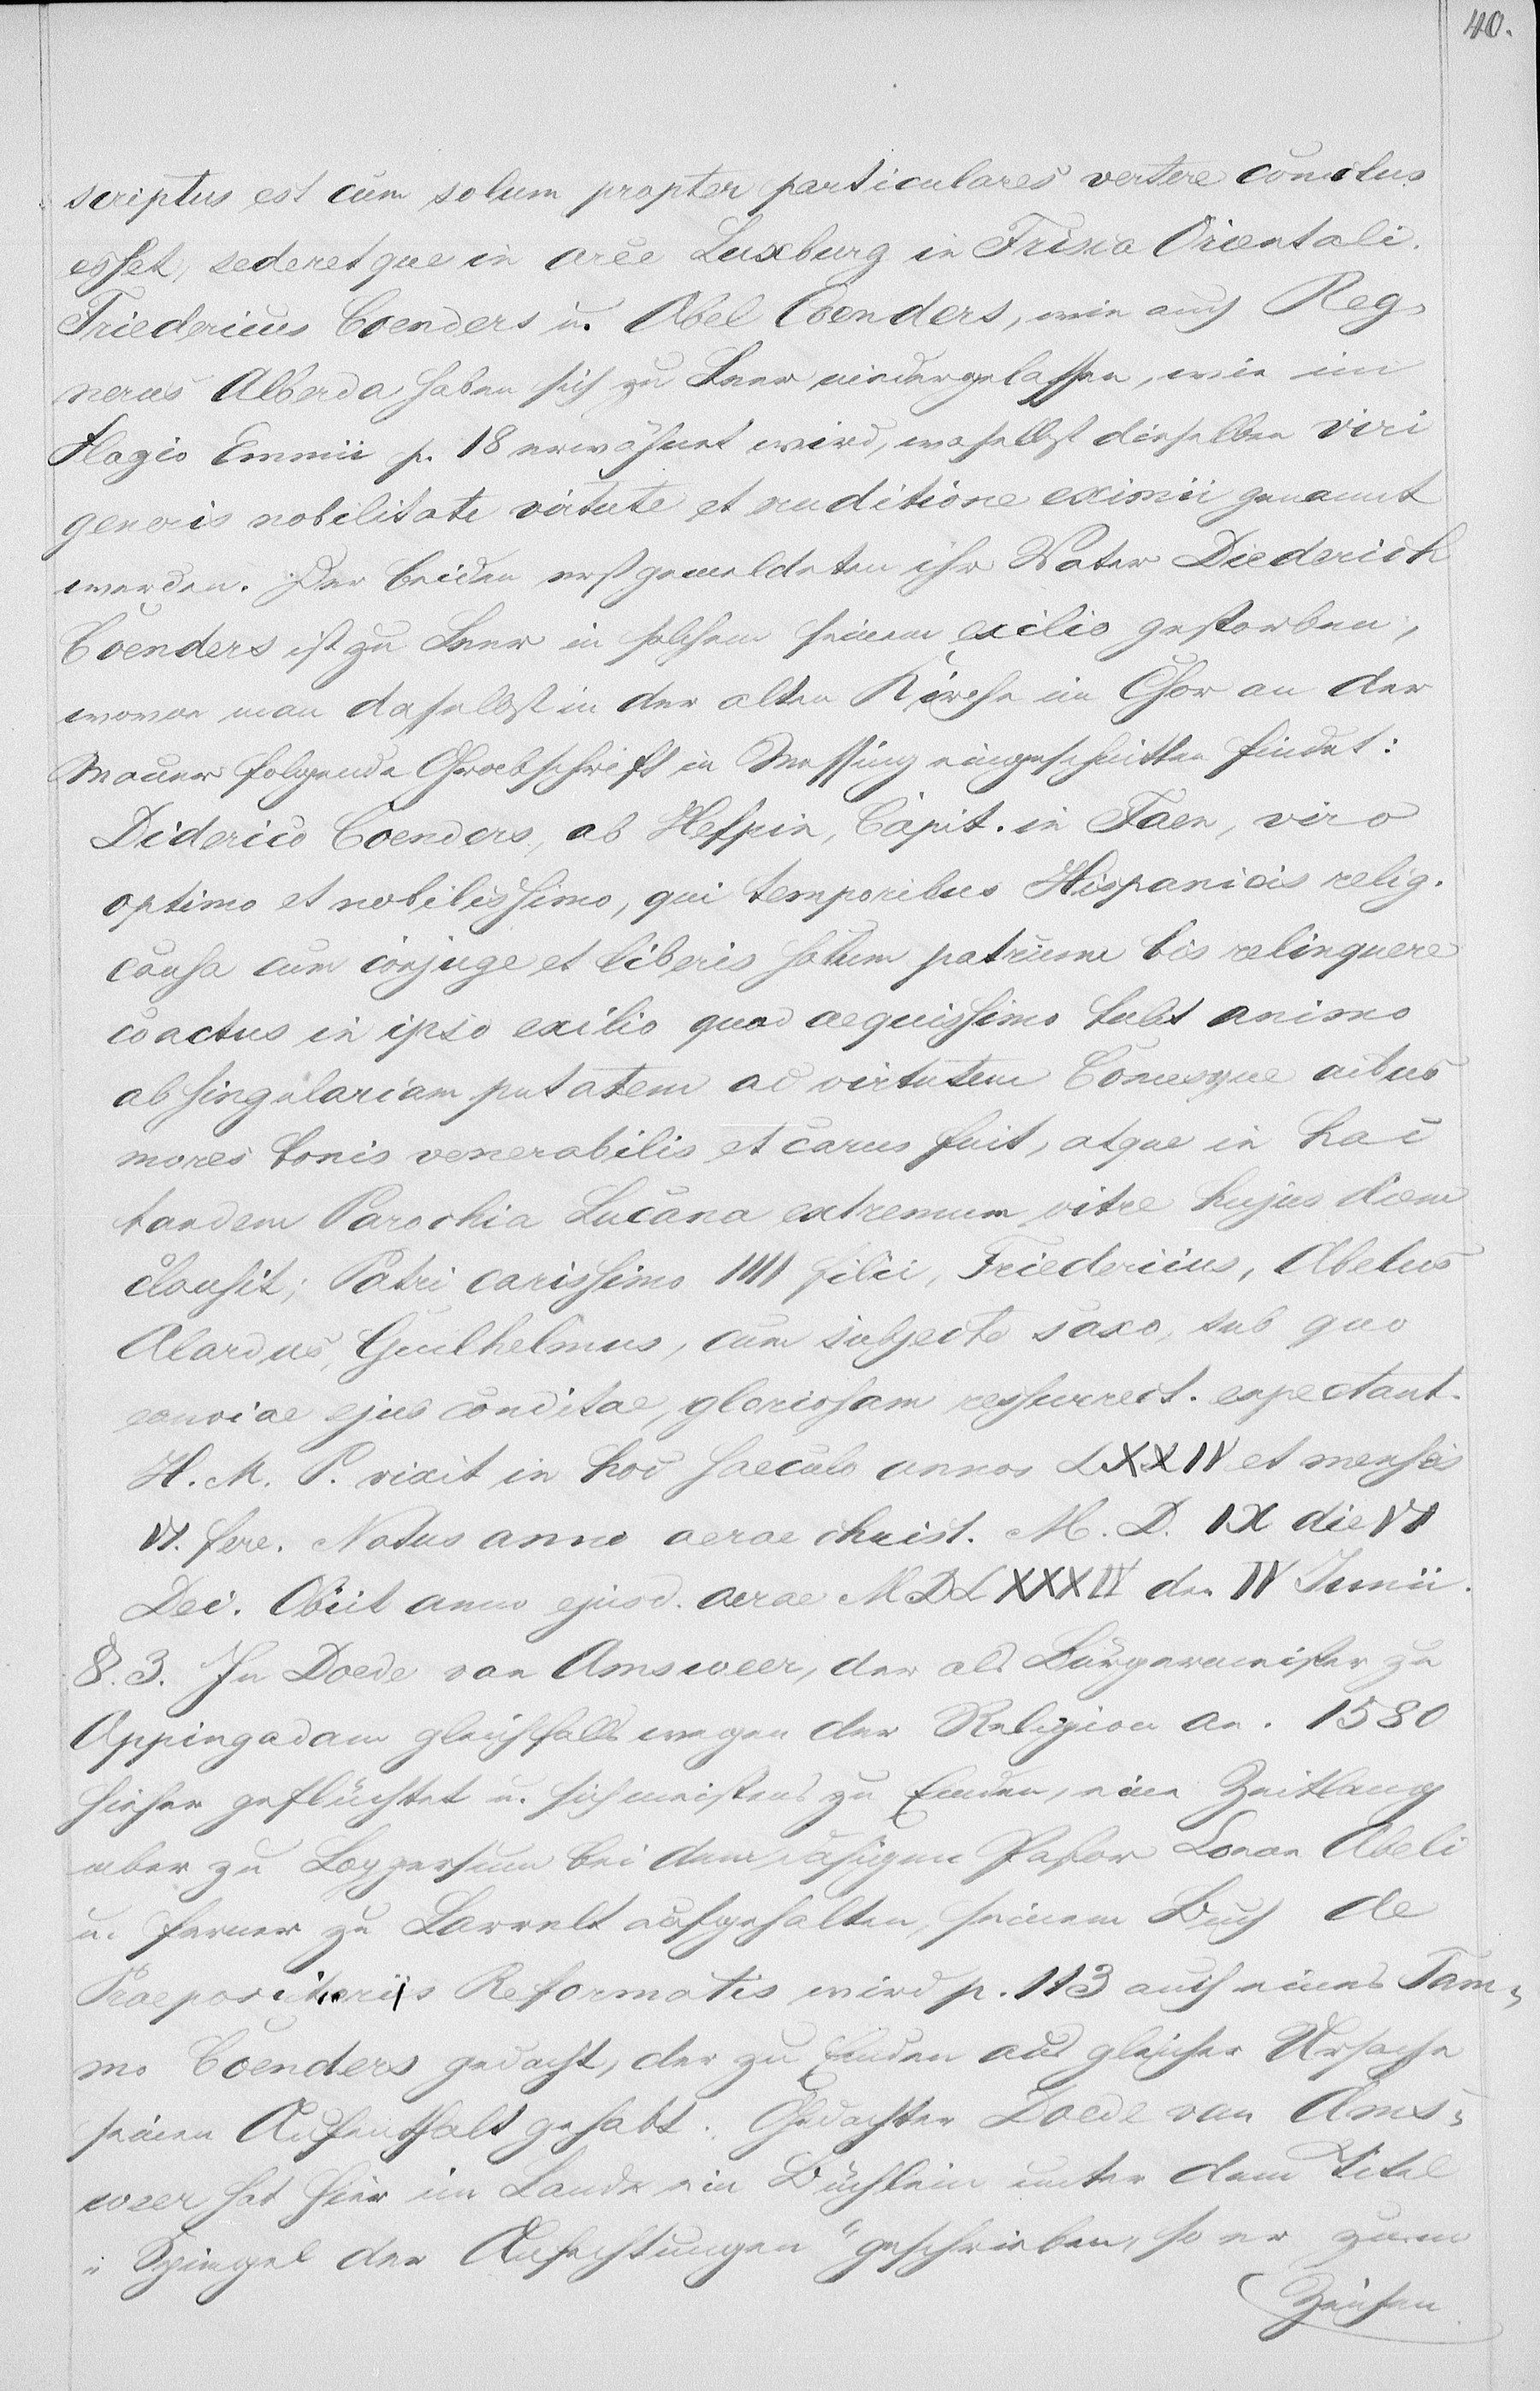 40.
scriptus est cum solum propter particulares vertere coactus
esset, sederetque in arce Luxburg in Frisia Orientali.
Friedericus Coenders u. Abel Coenders, wie auch Reg-
nerus Alberda haben sich zu Leer niedergelassen, wie im
Hagio Emmii p. 18 erwähnt wird, woselbst dieselben viri
generis nobilitate virtute et eruditione eximii genannt
werden. Der beiden erstgemeldeten ihr Vater Diederich
Coenders ist zu Leer in solchem seinem exilio gestorben,
wovon man daselbst in der alten Kirche im Chor an der
Mauer folgende Grabschrift in Messing eingeschnitten findet:
Diderico Coenders, ab Helpin, Capit. in Faen, viro
optimo et nobilissimo, qui temporibus Hispanicis relig.
causa cum conjuge et liberis solum patrium bis relinquere
coactus in ipso exilio quod aequissimo tulit animo
ab singulariam putatem ad virtutem Comesque
mores bonis venerabilis et carus fuit, atque in hac
tandem Parochia Lucana extremum vitae hujus diem
clausit; Patri carissimo IIII filii, Friedericus, Abelus
Alardus, Guilhelmus, cum subjecto saxo, sub quo
exuviae ejus conditae, gloriosam ressurrect. expectant.
H. M. P. vixit in hoc saeculo annos LXXIV et menses
VI. fere. Natus anno aerae christ. M. D. IX die VI
Dei. Obiit anno ejusd. aerae MDLXXXIV den IV Junii.
§. 3. In Doede van Amsweer, der als Bürgermeister zu
Appingadam gleichfalls wegen der Religion an. 1580
hieher geflüchtet u. sich meistens zu Emden, eine Zeitlang
aber zu Loppersum bei dem dasigen Pastor Abeli
u. ferner zu Larrelt aufgehalten, seinem Buch de
Praepositeriis Reformatis wird p. 113 auch eines Tam-
mo Coenders gedacht, der zu Emden aus gleicher Ursache
seinen Aufenthalt gehabt. Gedachter Doede van Ams-
weer hat hier im Lande ein Büchlein unter dem Titel
„Spiegel der Anfechtungen“ geschrieben, so er zum
Zeichen